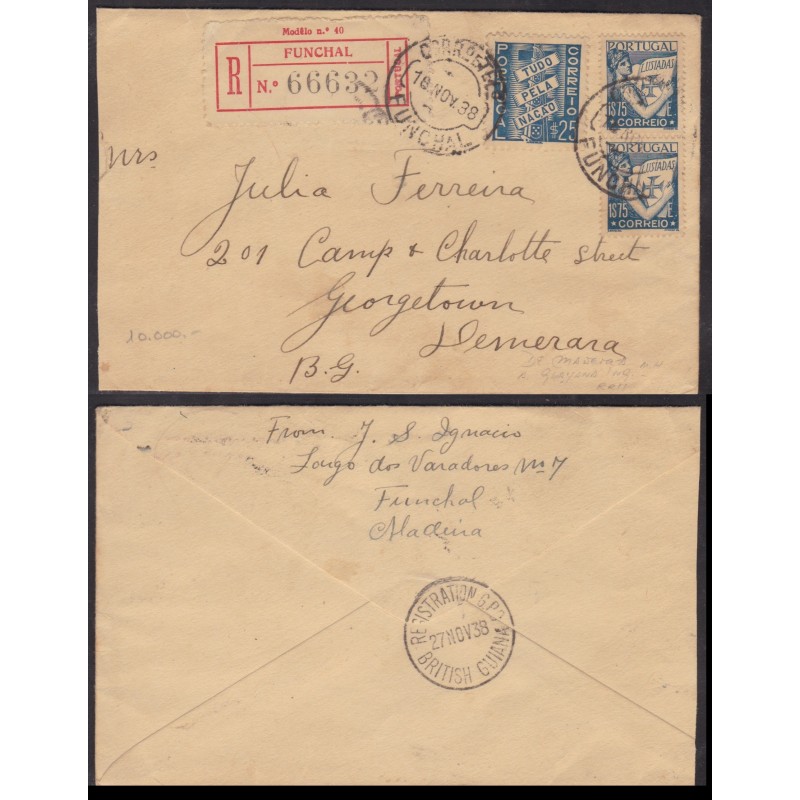 Modêlo n.º 40
FUNCHAL
R
N.º 66632
PORTUGAL
CORREIO
FUNCHAL
16 NOV. 38
PORTUGAL
CORREIO
TUDO
PELA
NAÇÃO
$25
PORTUGAL
LUSIADAS
1$75 E.
CORREIO
FUNCH
PORTUGAL
LUSIADAS
1$75 E.
CORREIO
Mrs
Julia Ferreira
201 Camp & Charlotte Street
Georgetown
Demerara
B.G.
10.000.-
From J. S. Ignacio
Largo dos Varadores No 7
Funchal
Madeira
REGISTRATION G.P.O.
27 NOV 38
BRITISH GUIANA